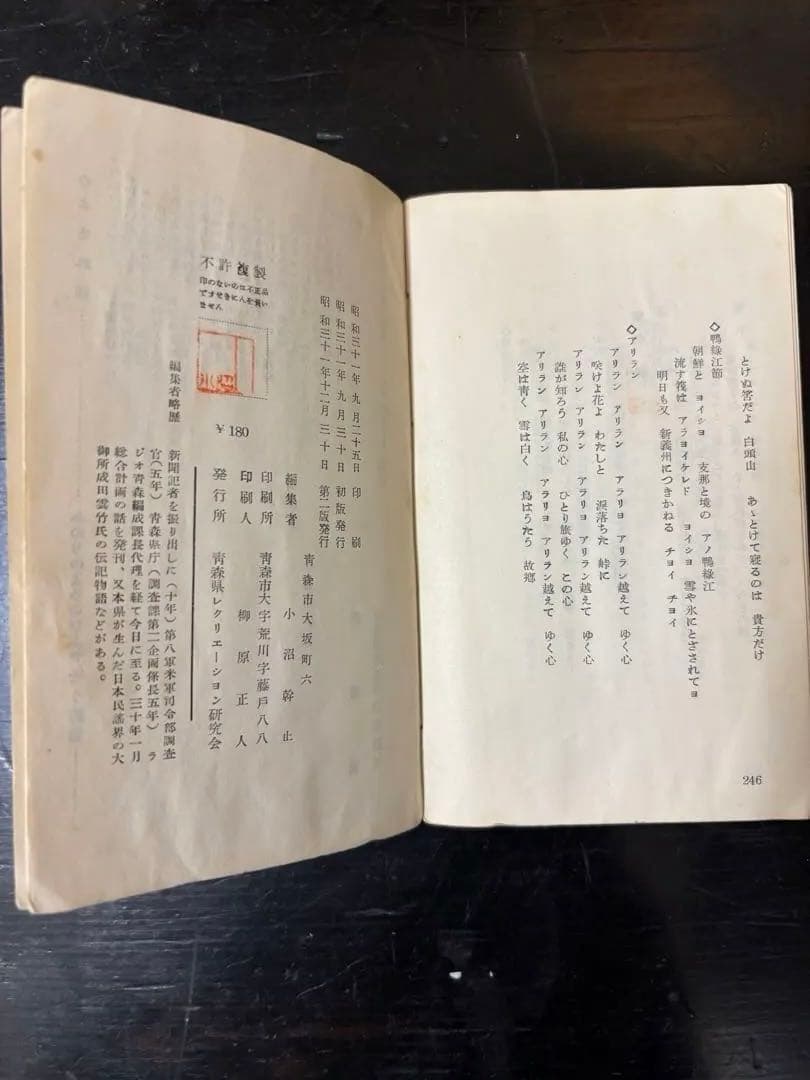 とけぬ筈だよ 白頭山 あゝとけて寝るのは 貴方だけ
◇鴨緑江節
朝鮮と ヨイショ 支那と境の アノ鴨緑江
流す筏は アラヨイケレド ヨイショ 雪や氷にとざされてヨ
明日も又 新義州につきかねる チョイ チョイ
◇アリラン
アリラン アリラン アラリヨ アリラン越えて ゆく心
咲けよ花よ わたしと 涙落ちた 峠に
アリラン アリラン アラリヨ アリラン越えて ゆく心
誰が知ろう 私の心 ひとり旅ゆく この心
アリラン アリラン アラリヨ アリラン越えて ゆく心
空は青く 雪は白く 鳥はうたう 故郷
246
昭和三十一年 九月二十五日 印刷
昭和三十一年 九月三十日 初版発行
昭和三十一年十二月三十日 第二版発行
不許複製
印のないのは不正品
ですせきにんを負い
ません
￥180
青森市大坂町六
編集者 小沼幹止
印刷所 青森市大字荒川字藤戸八八
印刷人 柳原正人
発行所 青森県レクリエーション研究会
編集者略歴 新聞記者を振り出しに（十年）第八軍米軍司令部調査
官（五年）青森県庁（調査課第二企画係長五年）ラ
ジオ青森編成課長代理を経て今日に至る。三十年一月
総合計画の話を発刊、又本県が生んだ日本民謡界の大
御所成田雲竹氏の伝記物語などがある。